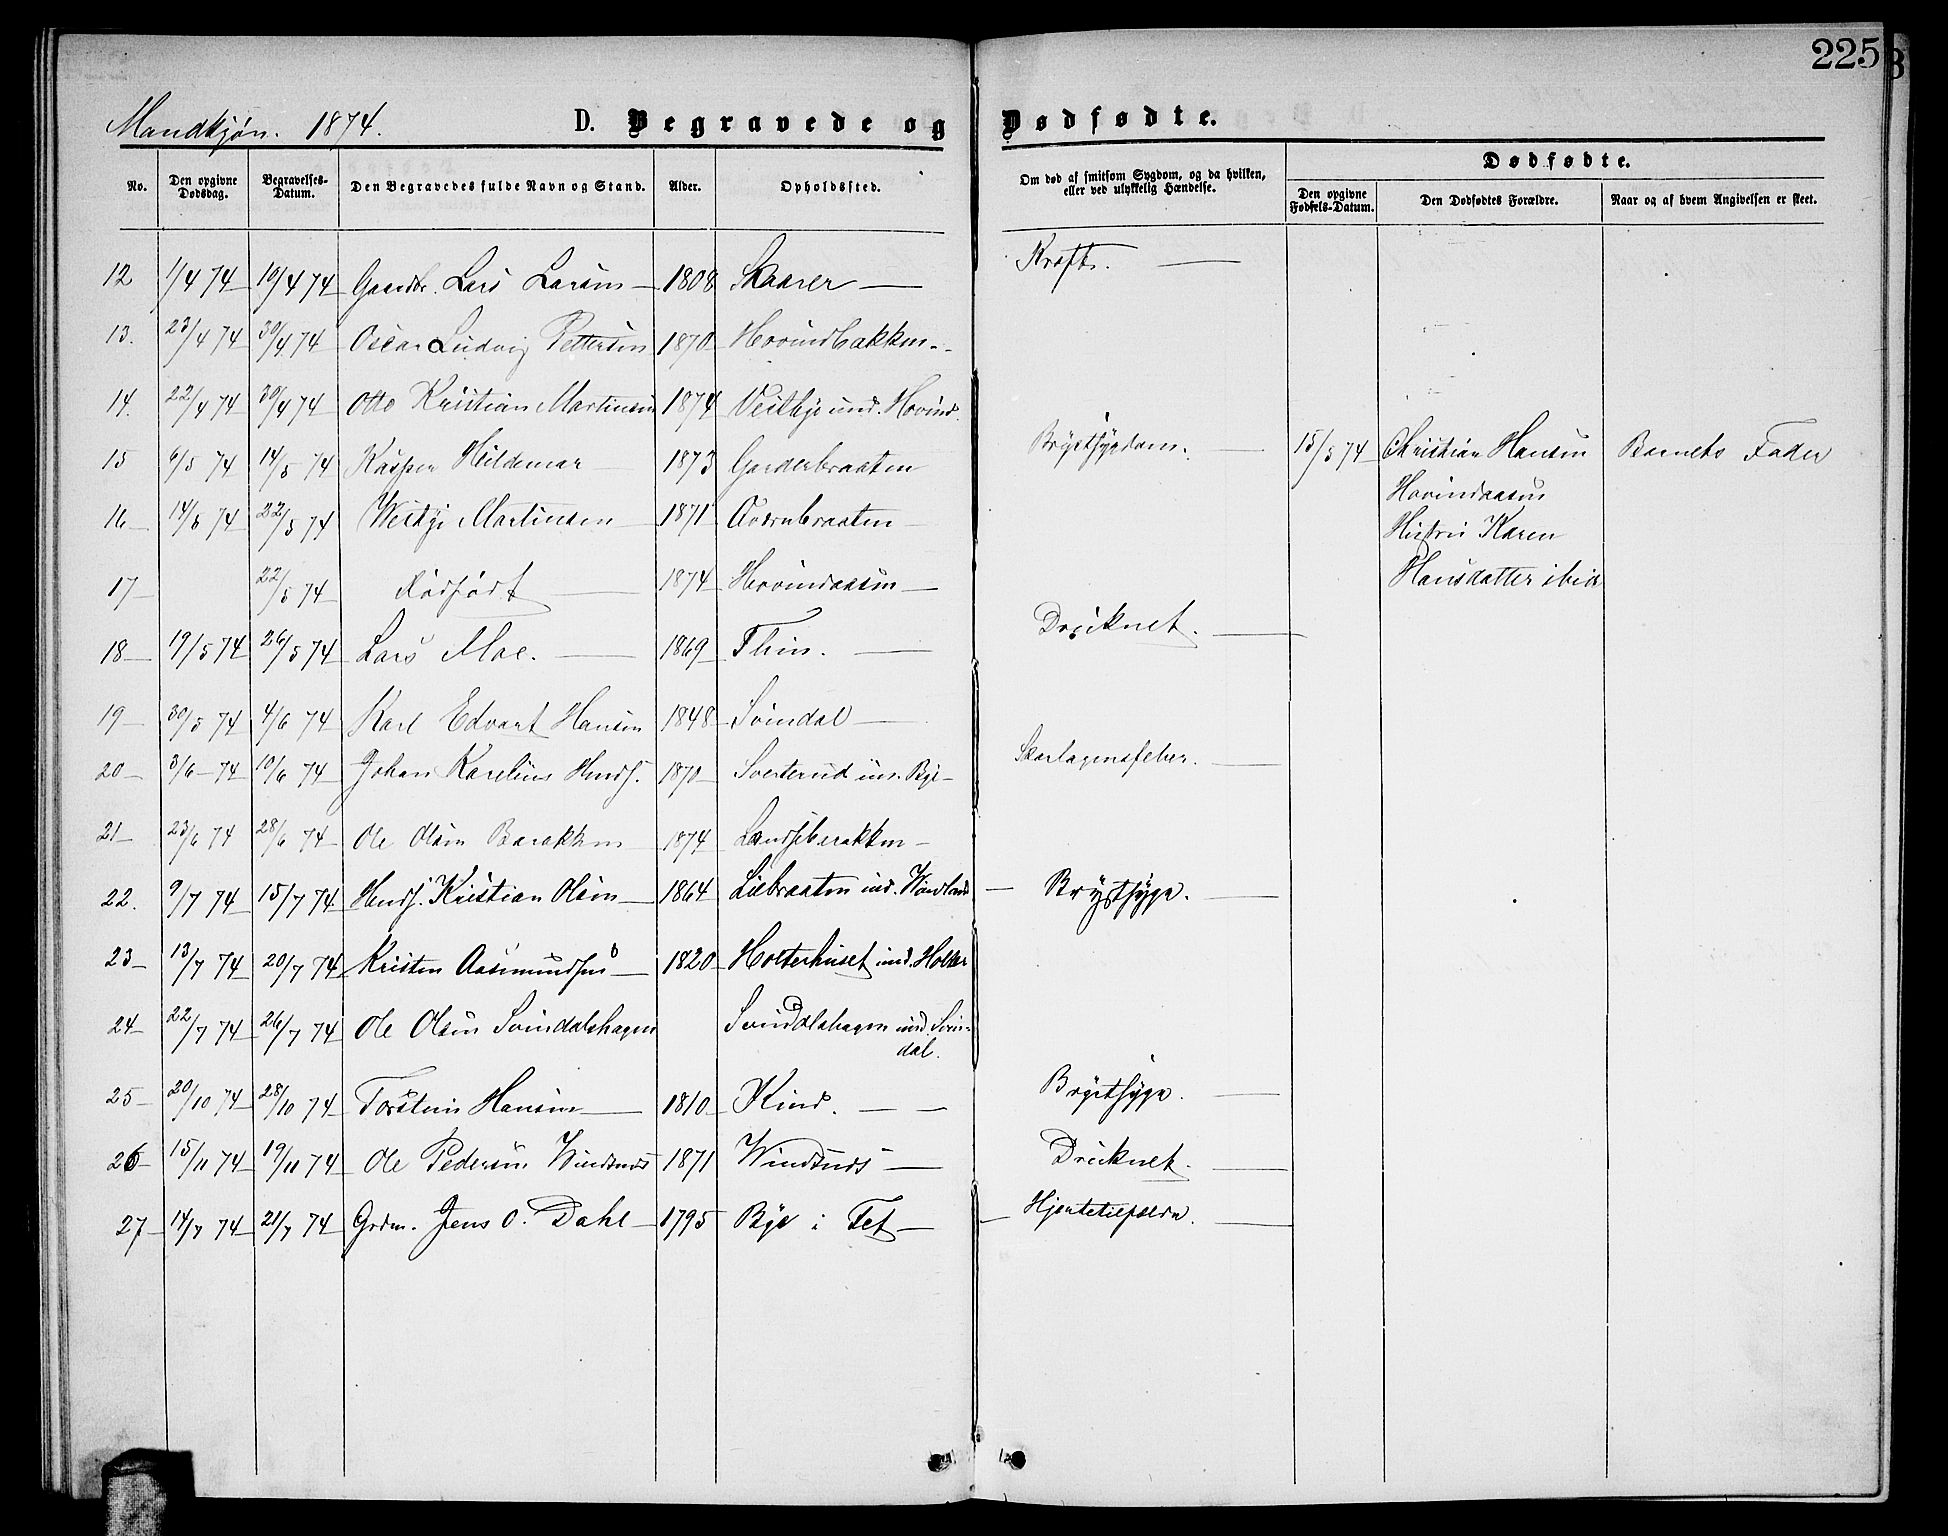 225
Mandkjøn. 1874.
D. Begravede og Dødfødte.
No. Den opgivne Dødsdag. Begravelses-Datum. Den Begravedes fulde Navn og Stand. Alder. Opholdssted. Om død af smitsom Sygdom, og da hvilken, eller ved ulykkelig Hændelse. Dødfødte.
Den opgivne Fødsels-Datum. Den Dødfødtes Forældre. Naar og af hvem Angivelsen er skeet.
12 1/4 74 10/4 74 Gaardbr. Lars Larsen 1808 Skaarer Kræft.
13. 23/4 74 30/4 74 Oscar Ludvig Pettersen 1870 Hovindbakken
14. 22/4 74 30/4 74 Otto Kristian Martinsen 1874 Vestbye und. Hovind.
15 6/5 74 14/5 74 Kasper Hildemar 1873 Garderbraaten Brystsygdom. 15/5 74 Christian Hansen Barnets Fader
Hovindaasen
16 14/5 74 22/5 74 Martinsen 1871 Hustru Karen
Hansdatter ibid
17 22/5 74 Dødfødt 1874 Hovindaasen
18 19/5 74 26/5 74 Lars Moe. 1869 Thin. Druknet.
19 30/5 74 4/6 74 Karl Edvart Hansen 1848 Svindal
20 3/6 74 10/6 74 Johan Karelius Hmdf. 1870 Sverterud un. Bye Skarlagensfeber.
21 23/6 74 28/6 74 Ole Olsen Barakken 1874
22. 9/7 74 15/7 74 Kristian Olsen 1864 Liebraaten und. Brystsyge.
23 13/7 74 20/7 74 Kristen Aasmundsen 1820 Holterhuset und. Holter
24 22/7 74 26/7 74 Ole Olsen Svindalshagen Svindalshagen und. Svin-
dal.
25 20/10 74 28/10 74 Torsten Hansen 1810 Kind. Brystsyge.
26 15/11 74 19/11 74 Ole Pedersen Windsnæs 1871 Windsnæs Druknet.
27 14/7 74 21/7 74 Grdm. Jens O. Dahl 1795 Bye i Fet Hjertetilfælde.